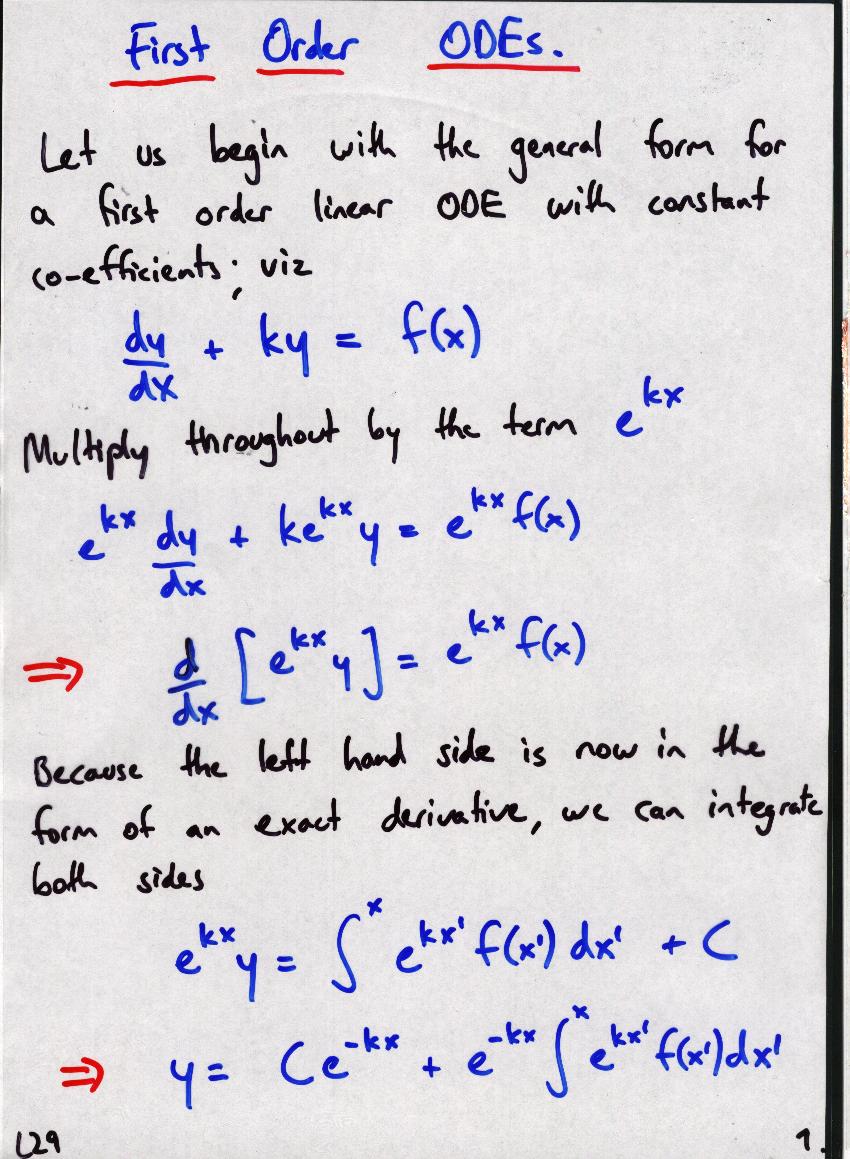 First Order ODEs.
Let us begin with the general form for
a first order linear ODE with constant
co-efficients; viz
dy/dx + ky = f(x)
Multiply throughout by the term e^{kx}
e^{kx} dy/dx + ke^{kx}y = e^{kx}f(x)
⇒ d/dx [e^{kx}y] = e^{kx}f(x)
Because the left hand side is now in the
form of an exact derivative, we can integrate
both sides
e^{kx}y = ∫^x e^{kx'}f(x')dx' + C
⇒ y = Ce^{-kx} + e^{-kx}∫^x e^{kx'}f(x')dx'
L29 1.